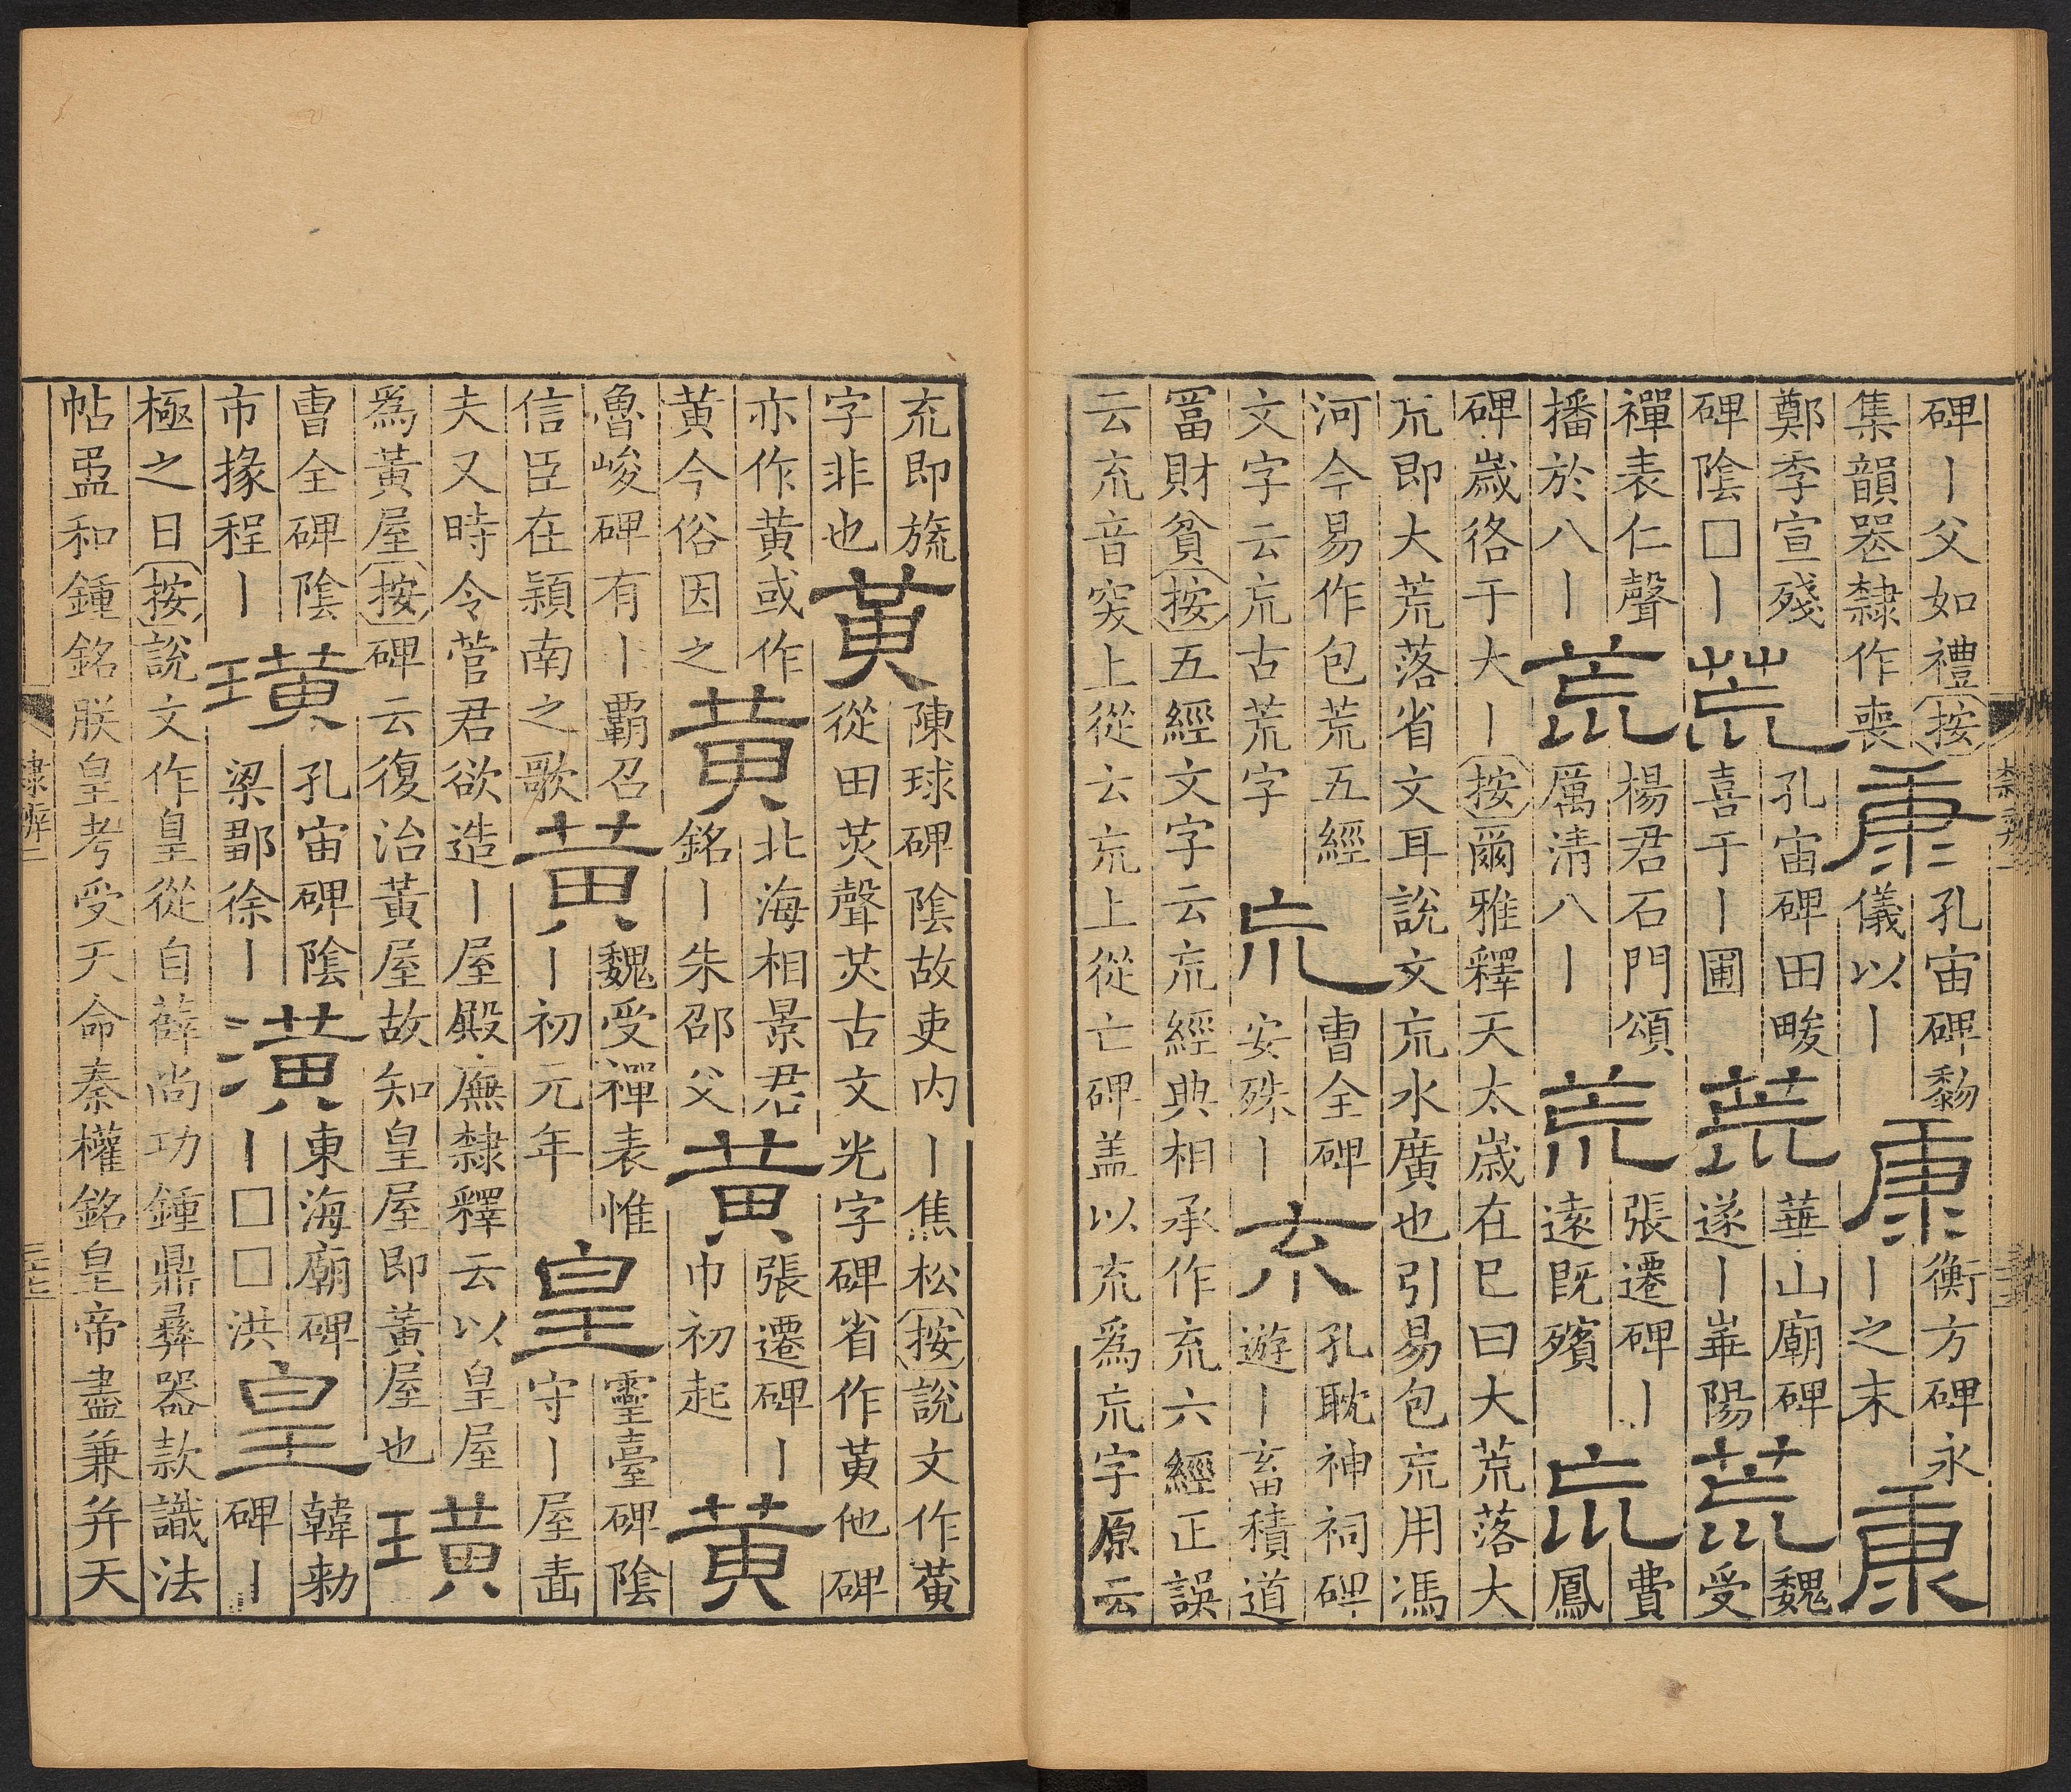 碑丨父如禮按
集韻㗊隸作喪
康
孔宙碑黎
儀以丨
康
衡方碑永
丨之末
康
鄭季宣殘
碑陰□丨
荒
孔宙碑田畯
喜于丨圃
荒
華山廟碑
遂丨崋陽
荒
魏
受
禪表仁聲
播於八丨
荒
楊君石門頌
厲清八丨
荒
張遷碑丨
遠既殯
巟
費
鳳
碑歲徦于大丨按爾雅釋天太歲在巳曰大荒落大
巟即大荒落省文耳說文巟水廣也引易包巟用馮
河今易作包荒五經
文字云巟古荒字
巟
曹全碑
安殊丨
㐬
孔耽神祠碑
遊丨畜積道
富財貧按五經文字云㐬經典相承作㐬六經正誤
云㐬音突上從云巟上從亡碑盖以㐬爲巟字原云
㐬即旒
字非也
黃
陳球碑陰故吏内丨焦松按說文作黃
從田炗聲炗古文光字碑省作黄他碑
亦作黄或作
黄今俗因之
黃
北海相景君
銘丨朱邵父
黃
張遷碑丨
巾初起
黃
魯峻碑有丨霸召
信臣在潁南之歌
黃
魏受禪表惟
丨初元年
皇
靈臺碑陰
守丨屋嗇
夫又時令菅君欲造丨屋殿廡隸釋云以皇屋
爲黃屋按碑云復治黃屋故知皇屋即黃屋也
璜
曹全碑陰
市掾程丨
璜
孔宙碑陰
梁鄒徐丨
潢
東海廟碑
丨□□洪
皇
韓勑
碑丨
極之日按說文作皇從自薛尚功鍾鼎彝器款識法
帖盄和鍾銘朕皇考受天命秦權銘皇帝盡兼并天
隸辨二